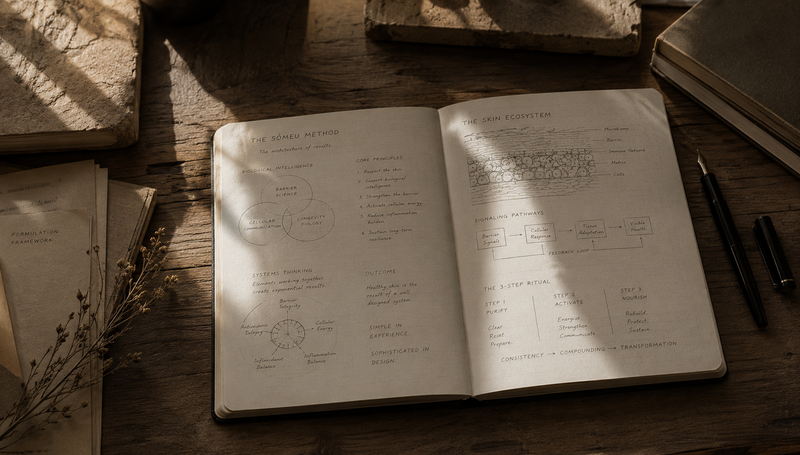 THE SÓMEU METHOD
The architecture of results.
BIOLOGICAL INTELLIGENCE
BARRIER
SCIENCE
CELLULAR
COMMUNICATION
LONGEVITY
BIOLOGY
CORE PRINCIPLES
1. Respect the skin
2. Support biological
intelligence
3. Strengthen the barrier
4. Activate cellular energy
5. Reduce inflammation
burden
6. Sustain long-term
resilience
SYSTEMS THINKING
Elements working together
create exponential results.
Barrier
Integrity
Cellular
Energy
Inflammation
Balance
Balance
Antioxidant
OUTCOME
Healthy skin is the
result of a well
designed system.
SIMPLE IN
EXPERIENCE.
SOPHISTICATED IN
DESIGN.
THE SKIN ECOSYSTEM
Microbiome
Barrier
Immune Network
Matrix
Cells
SIGNALING PATHWAYS
Barrier
Signals
Cellular
Response
Tissue
Adaptation
Visible
Health
FEEDBACK LOOP
THE 3-STEP RITUAL
STEP 1
PURIFY
Clear
Reset
Prepare.
STEP 2
ACTIVATE
Energise
Strengthen
Communicate.
STEP 3
NOURISH
Rebuild
Protect
Sustain.
CONSISTENCY → COMPOUNDING → TRANSFORMATION
FORMULATION
FRAMEWORK